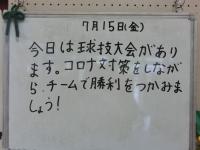 7月15日(金)
今日は球技大会があり
ます。コロナ対策をしなが
ら、チームで勝利をつかみま
しょう!